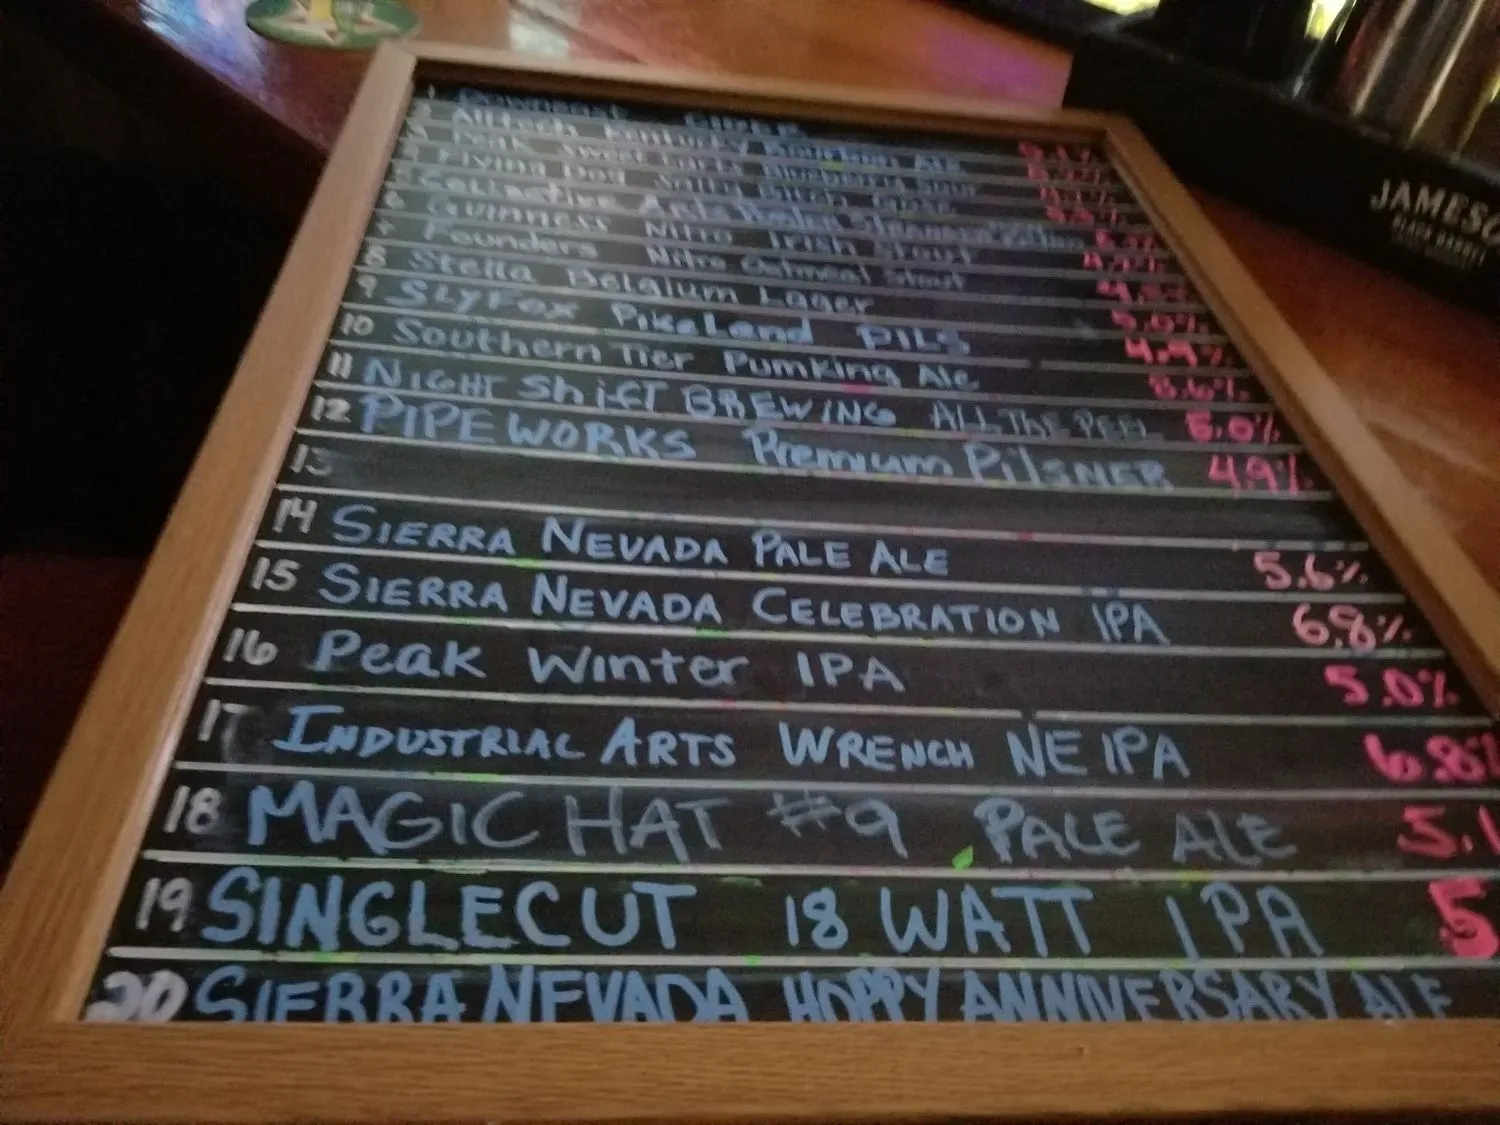 1 Downeast CIDER 5.1%
2 Alltech Kentucky Bourbon Ale
3 Peak Sweet Tarts Blueberry Sour
4 Flying Dog Salty Bitch Gose
5 Collective Arts
6 GUINNESS Nitro Irish Stout
7 Founders Nitro Oatmeal Stout
8 Stella Belgium Lager 5.0%
9 SLYFOX PikeLand PILS 4.9%
10 Southern Tier Pumking Ale 8.6%
11 NIGHT Shift BREWING ALL THE PEEL 5.0%
12 PIPEWORKS Premium PilSNER 4.9%
13
14 SIERRA NEVADA PALE ALE 5.6%
15 SIERRA NEVADA CELEBRATION IPA 6.8%
16 Peak Winter IPA 5.0%
17 INDUSTRIAL ARTS WRENCH NE IPA 6.8%
18 MAGIC HAT #9 PALE ALE 5.1
19 SINGLECUT 18 WATT IPA 5
20 SIERRA NEVADA HOPPY ANNIVERSARY ALE
JAMESO
BLACK BARREL